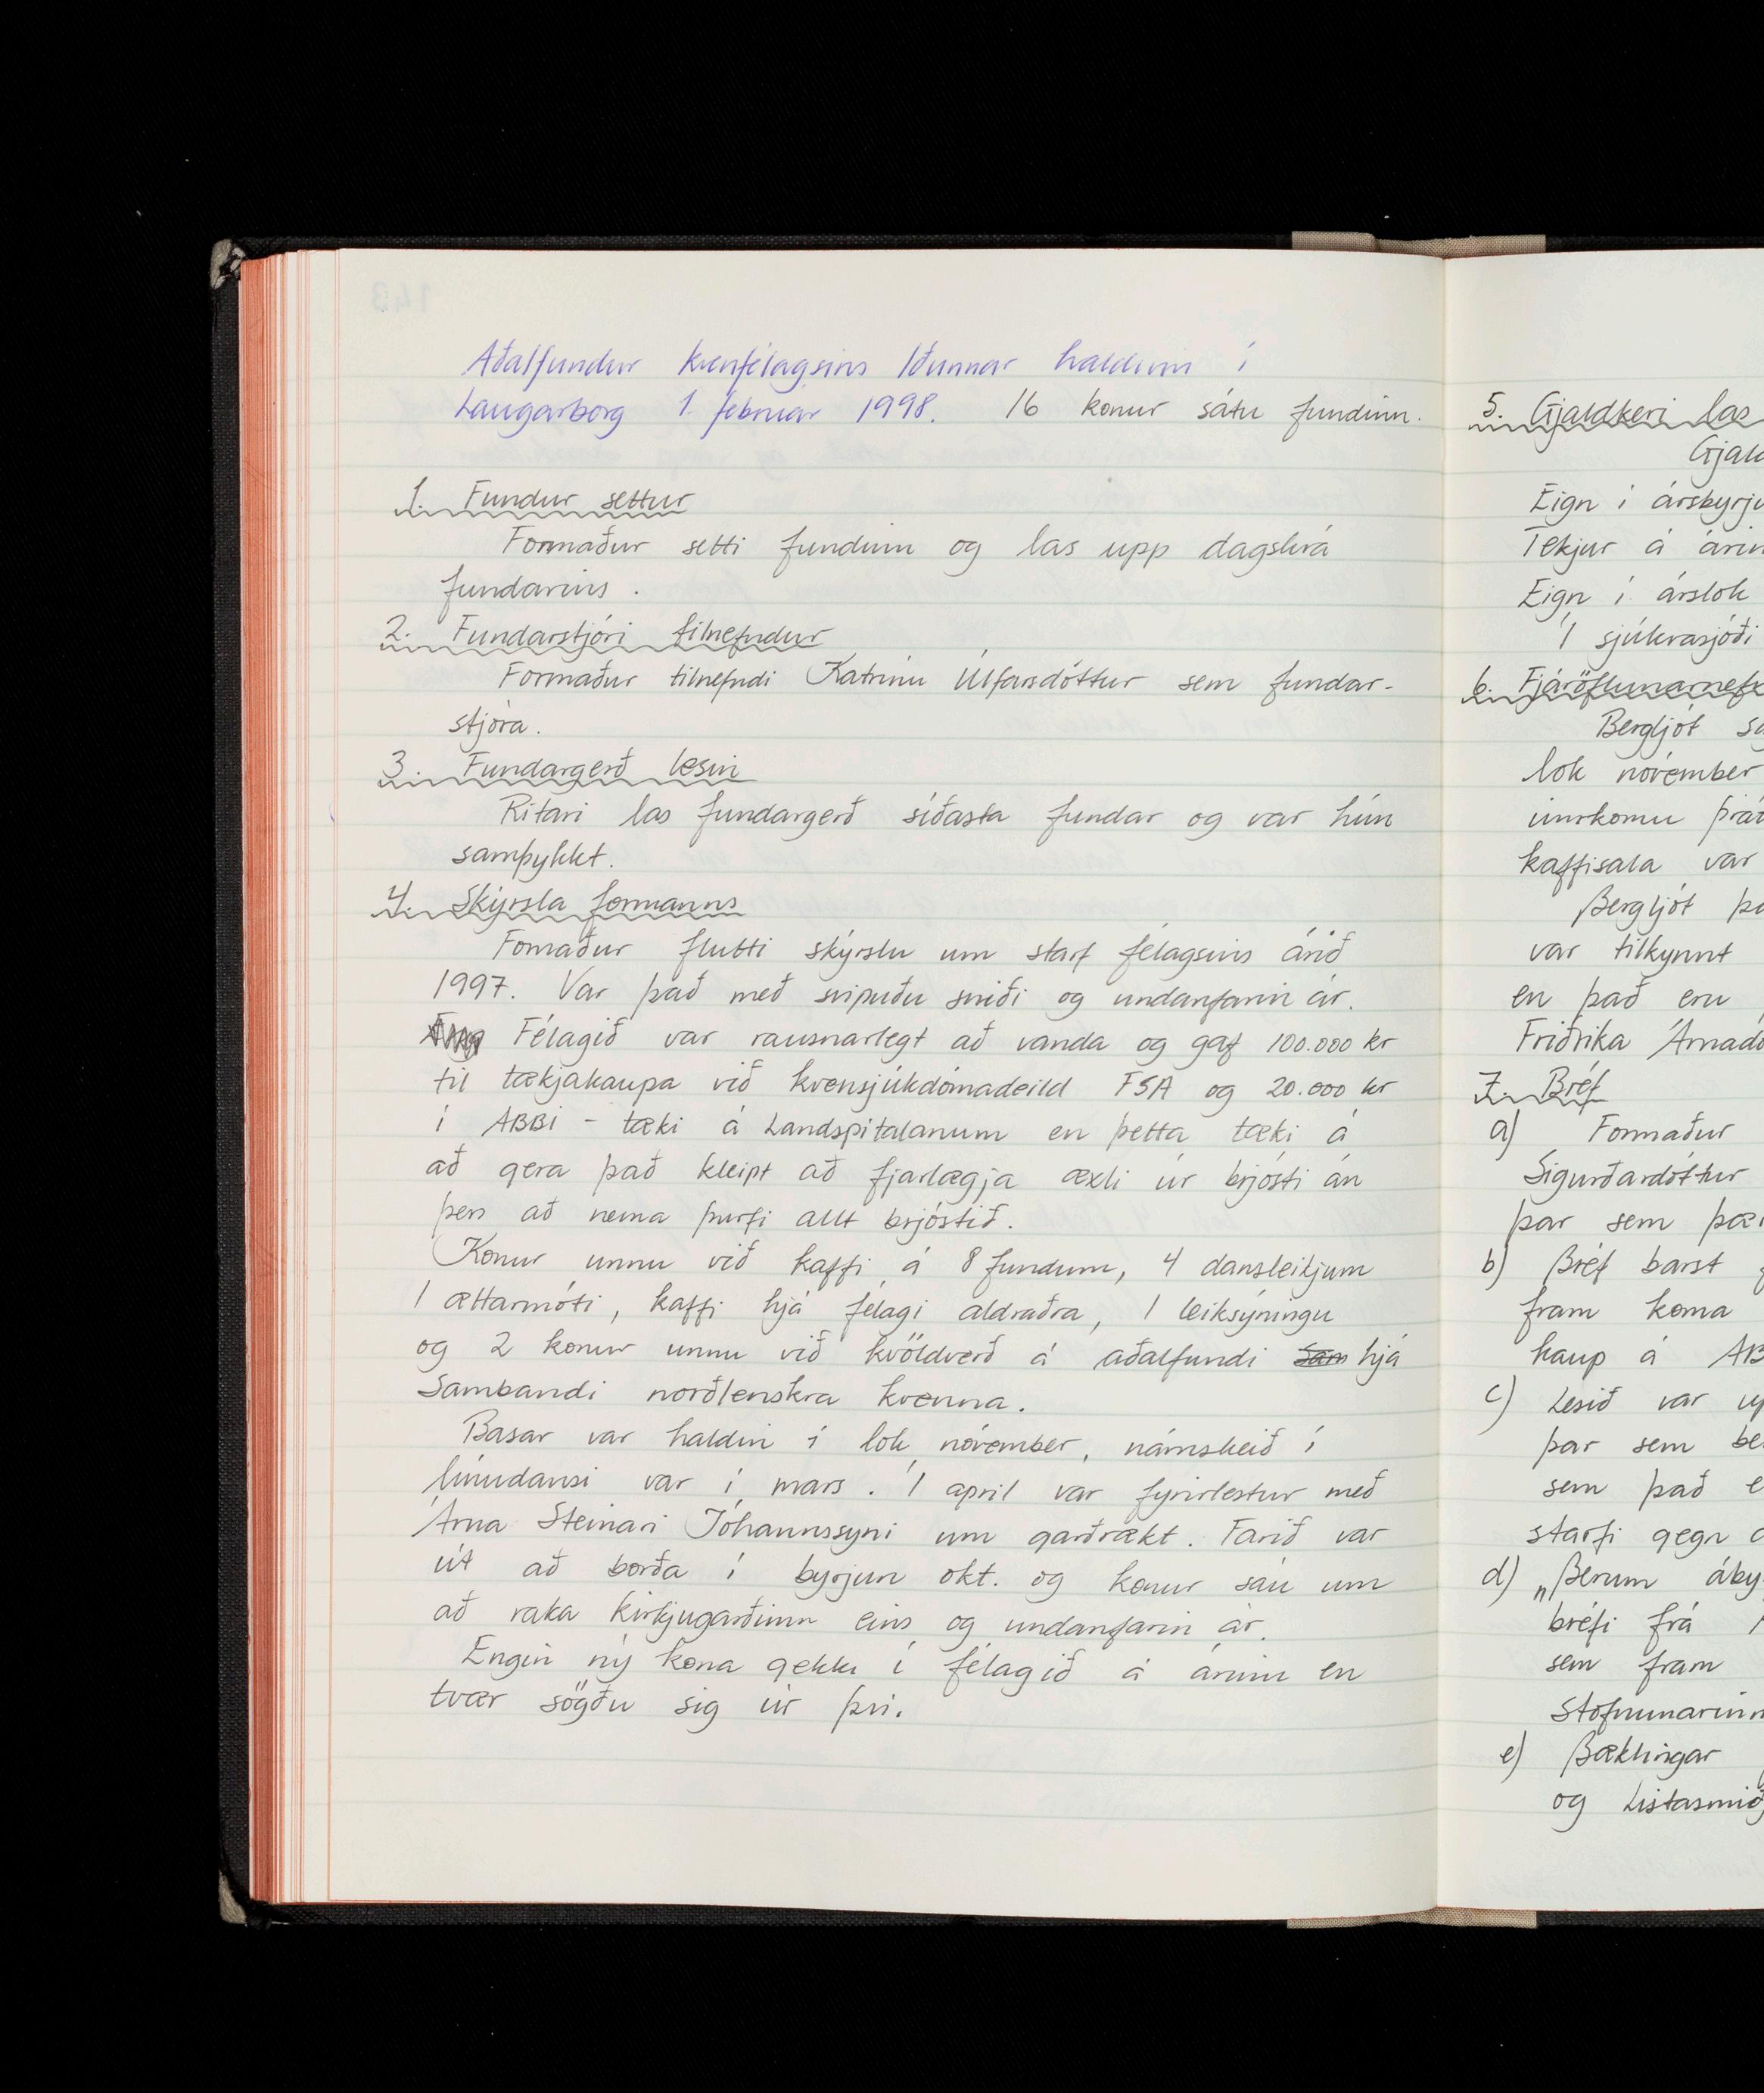 Aðalfundur kvenfélagsins Iðunnar haldinn í
Laugarborg 1. febrúar 1998. 16 konur sátu fundinn.
1. Fundur settur
Formaður setti fundinn og las upp dagskrá
fundarins.
2. Fundarstjóri tilnefndur
Formaður tilnefndi Katrínu Úlfarsdóttur sem fundar-
stjóra.
3. Fundargerð lesin
Ritari las fundargerð síðasta fundar og var hún
samþykkt.
4. Skýrsla formanns
Formaður flutti skýrslu um starf félagsins árið
1997. Var það með svipuðu sniði og undanfarin ár.
Félagið var rausnarlegt að vanda og gaf 100.000 kr
til tækjakaupa við kvensjúkdómadeild FSA og 20.000 kr
í ABBI - tæki á Landspítalanum en þetta tæki á
að gera það kleipt að fjarlægja æxli úr brjósti án
þess að nema þurfi allt brjóstið.
Konur unnu við kaffi á 8 fundum, 4 dansleikjum
1 ættarmóti, kaffi hjá félagi aldraðra, 1 leiksýningu
og 2 konur unnu við kvöldverð á aðalfundi Sam hjá
Sambandi norðlenskra kvenna.
Basar var haldin í lok nóvember, námskeið í
línudansi var í mars. Í apríl var fyrirlestur með
Árna Steinari Jóhannssyni um garðrækt. Farið var
út að borða í byrjun okt. og konur sáu um
að raka kirkjugarðinn eins og undanfarin ár.
Engin ný kona gekk í félagið á árinu en
tvær sögðu sig úr því.
5. Gjaldkeri las
Gjald
Eign í ársbyrju
Tekjur á árin
Eign í árslok
Í sjúkrasjóði
6. Fjáröflunarnefn
Bergljót sa
lok nóvember
innkomu þrát
kaffisala var
Bergljót þa
var tilkynnt
en það eru
Friðrika Árnadó
7. Bréf
a) Formaður
Sigurðardóttur
þar sem þær
b) Bréf barst f
fram koma
kaup á AB
c) Lesið var up
þar sem be
sem það e
starfi gegn
d) „Berum áby
bréfi frá
sem fram
stofnunarinn
e) Bæklingar
og Listasmið